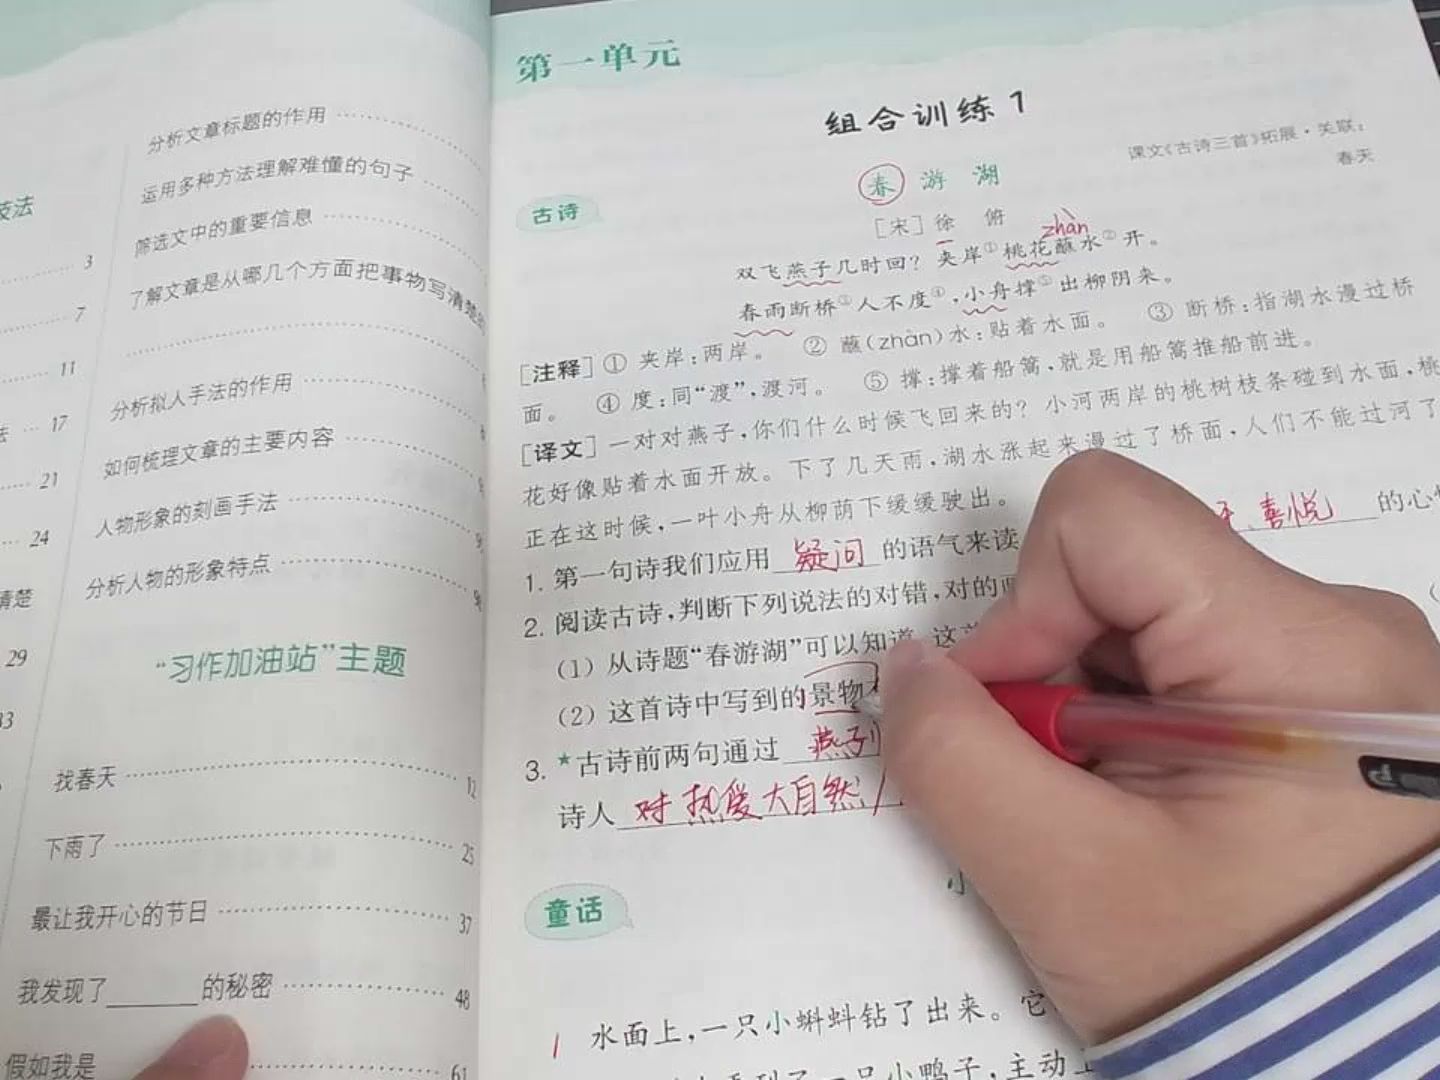 技法
3
7
11
法 17
21
24
清楚
29
33
分析文章标题的作用
运用多种方法理解难懂的句子
筛选文中的重要信息
了解文章是从哪几个方面把事物写清楚的
分析拟人手法的作用
如何梳理文章的主要内容
人物形象的刻画手法
分析人物的形象特点
“习作加油站”主题
找春天 12
下雨了 25
最让我开心的节日 37
我发现了 的秘密 48
假如我是 61
第一单元
组合训练1
课文《古诗三首》拓展·关联：
春天
古诗
春 游 湖
[宋]徐 俯
zhàn
双飞燕子几时回？夹岸①桃花蘸水②开。
春雨断桥③人不度④，小舟撑⑤出柳阴来。
[注释]① 夹岸：两岸。 ② 蘸(zhàn)水：贴着水面。 ③ 断桥：指湖水漫过桥
面。 ④ 度：同“渡”，渡河。 ⑤ 撑：撑着船篙，就是用船篙推船前进。
[译文]一对对燕子，你们什么时候飞回来的？小河两岸的桃树枝条碰到水面，桃
花好像贴着水面开放。下了几天雨，湖水涨起来漫过了桥面，人们不能过河了
正在这时候，一叶小舟从柳荫下缓缓驶出。
1. 第一句诗我们应用 疑问 的语气来读 、喜悦 的心情
2. 阅读古诗，判断下列说法的对错，对的画
(1) 从诗题“春游湖”可以知道，这首
(2) 这首诗中写到的景物
3. ★古诗前两句通过 燕子
诗人 对热爱大自然
童话
小
1 水面上，一只小蝌蚪钻了出来。它
一只小鸭子，主动